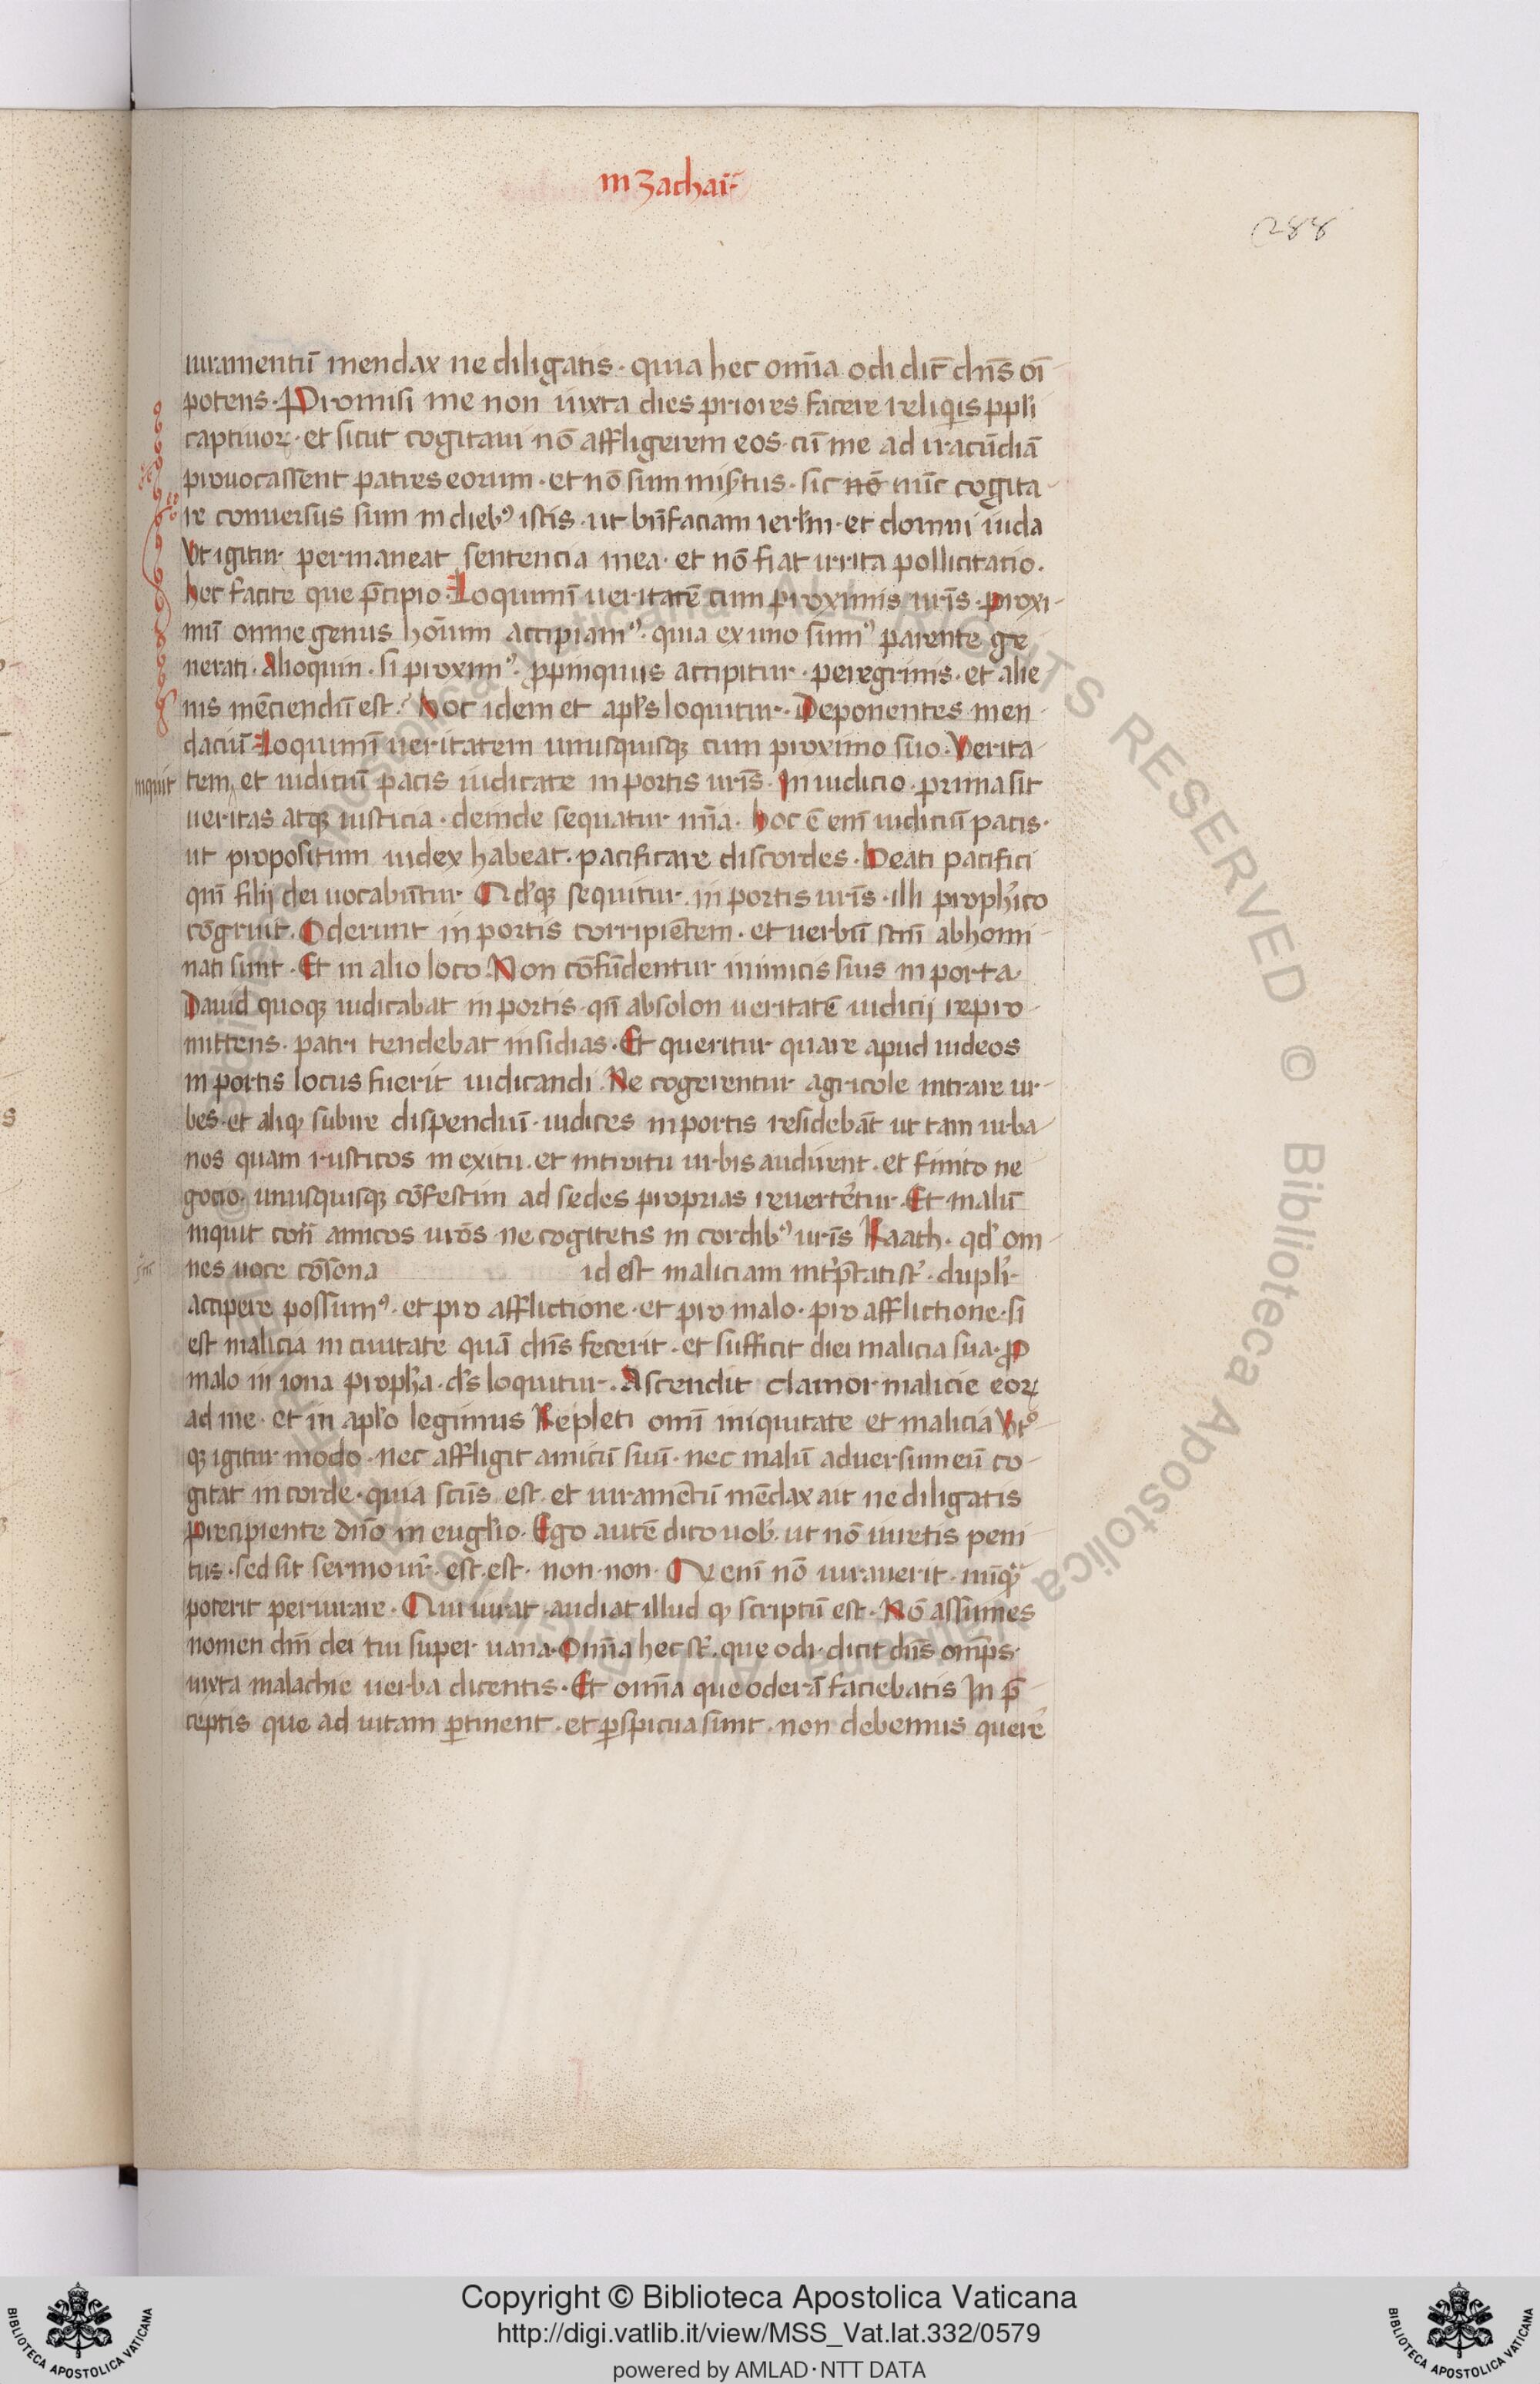 in Zachar̄
288
iuramentū mendax ne diligatis · quia hec om̄ia odi dic̄ dn̄s oī
potens · Promisi me non iuxta dies priores facere reliqis ppl̄i
captiuoꝝ · et sicut cogitaui nō affligerem eos · cū me ad iracūdiā
prouocassent patres eorum · et nō sum misertus · sic nō nūc cogita
re conuersus sum in diebꝰ istis · ut bn̄faciam ierl̄m · et domui iuda
Vt igitur permaneat sentencia mea · et nō fiat irrita pollicitatio ·
hec facite que p̄cipio · Loquimī ueritatē cum proximis ur̄is · proxi
mū omne genus hoīum accipiamꝰ · quia ex uno sumꝰ parente ge
nerati · Alioquin · si proximꝰ · ꝓpinquus accipitur · peregrinis · et alie
nis mēciendū est · Hoc idem et apl̄s loquitur · Deponentes men
daciū Loquimī ueritatem unusquisqꝫ cum proximo suo · Verita
inquit
tem et iudiciū pacis iudicate in portis ur̄is · In iudicio · prima sit
ueritas atqꝫ iusticia · deinde sequatur mīa · hoc ē enī iudiciū pacis ·
ut propositum iudex habeat · pacificare discordes · Beati pacifici
qm̄ filij dei uocabūtur Qd'qꝫ sequitur · in portis ur̄is · illi proph̄ico
cōgruit · Oderunt in portis corripiētem · et uerbū scm̄ abhomi
nati sunt · Et in alio loco Non cōfūdentur inimicis suis in porta ·
Dauid quoqꝫ iudicabat in portis · qn̄ absolon ueritatē iudicij repro
mittens · patri tendebat insidias · Et queritur quare apud iudeos
in portis locus fuerit iudicandi · Ne cogerentur agricole intrare ur
bes · et aliqꝫ subire dispendiū · iudices in portis residebāt ut tam urba
nos quam rusticos in exitu · et introitu urbis audirent · et finito ne
gocio · unusquisqꝫ cōfestim ad sedes proprias reuerteret̄ur · Et malū
inquit con̄ amicos ur̄os · ne cogitetis in cordibꝰ ur̄is Raath · qd' om
nes uoce cōsona id est maliciam int̄p̄tati st̄ · dupl̄r
accipere possumꝰ · et pro afflictione · et pro malo · pro afflictione · si
est malicia in ciuitate quā dn̄s fecerit · et sufficit diei malicia sua · ꝓ
malo in iona proph̄a · d's loquitur · Ascendit clamor malicie eoꝝ
ad me · et in apl̄o legimus Repleti omī iniquitate et malicia Vtꝰ
qꝫ igitur modo · nec affligit amicū suū · nec malū aduersum eū co
gitat in corde · quia scūs est · et iuramētū mēdax ait ne diligatis
Precipiente dn̄o in eugl̄io · Ego autē dico uob̄ · ut nō iuretis peni
tus · sed sit sermo ur̄ · est · est · non · non · Qui enī nō iurauerit · nūqꝫ
poterit periurare · Qui iurat · audiat illud qꝫ scriptū est · Nō assumes
nomen dn̄i dei tui super uana · Om̄ia hec st̄ · que odi · dicit dn̄s omp̄s ·
iuxta malachie uerba dicentis · Et om̄ia que oderā faciebatis In p̄
ceptis que ad uitam ꝑtinent · et ꝑspicua sunt · non debemus querē
ALL RIGHTS RESERVED © Biblioteca Apostolica Vaticana
Copyright © Biblioteca Apostolica Vaticana
http://digi.vatlib.it/view/MSS_Vat.lat.332/0579
powered by AMLAD·NTT DATA
BIBLIOTECA APOSTOLICA VATICANA
BIBLIOTECA APOSTOLICA VATICANA